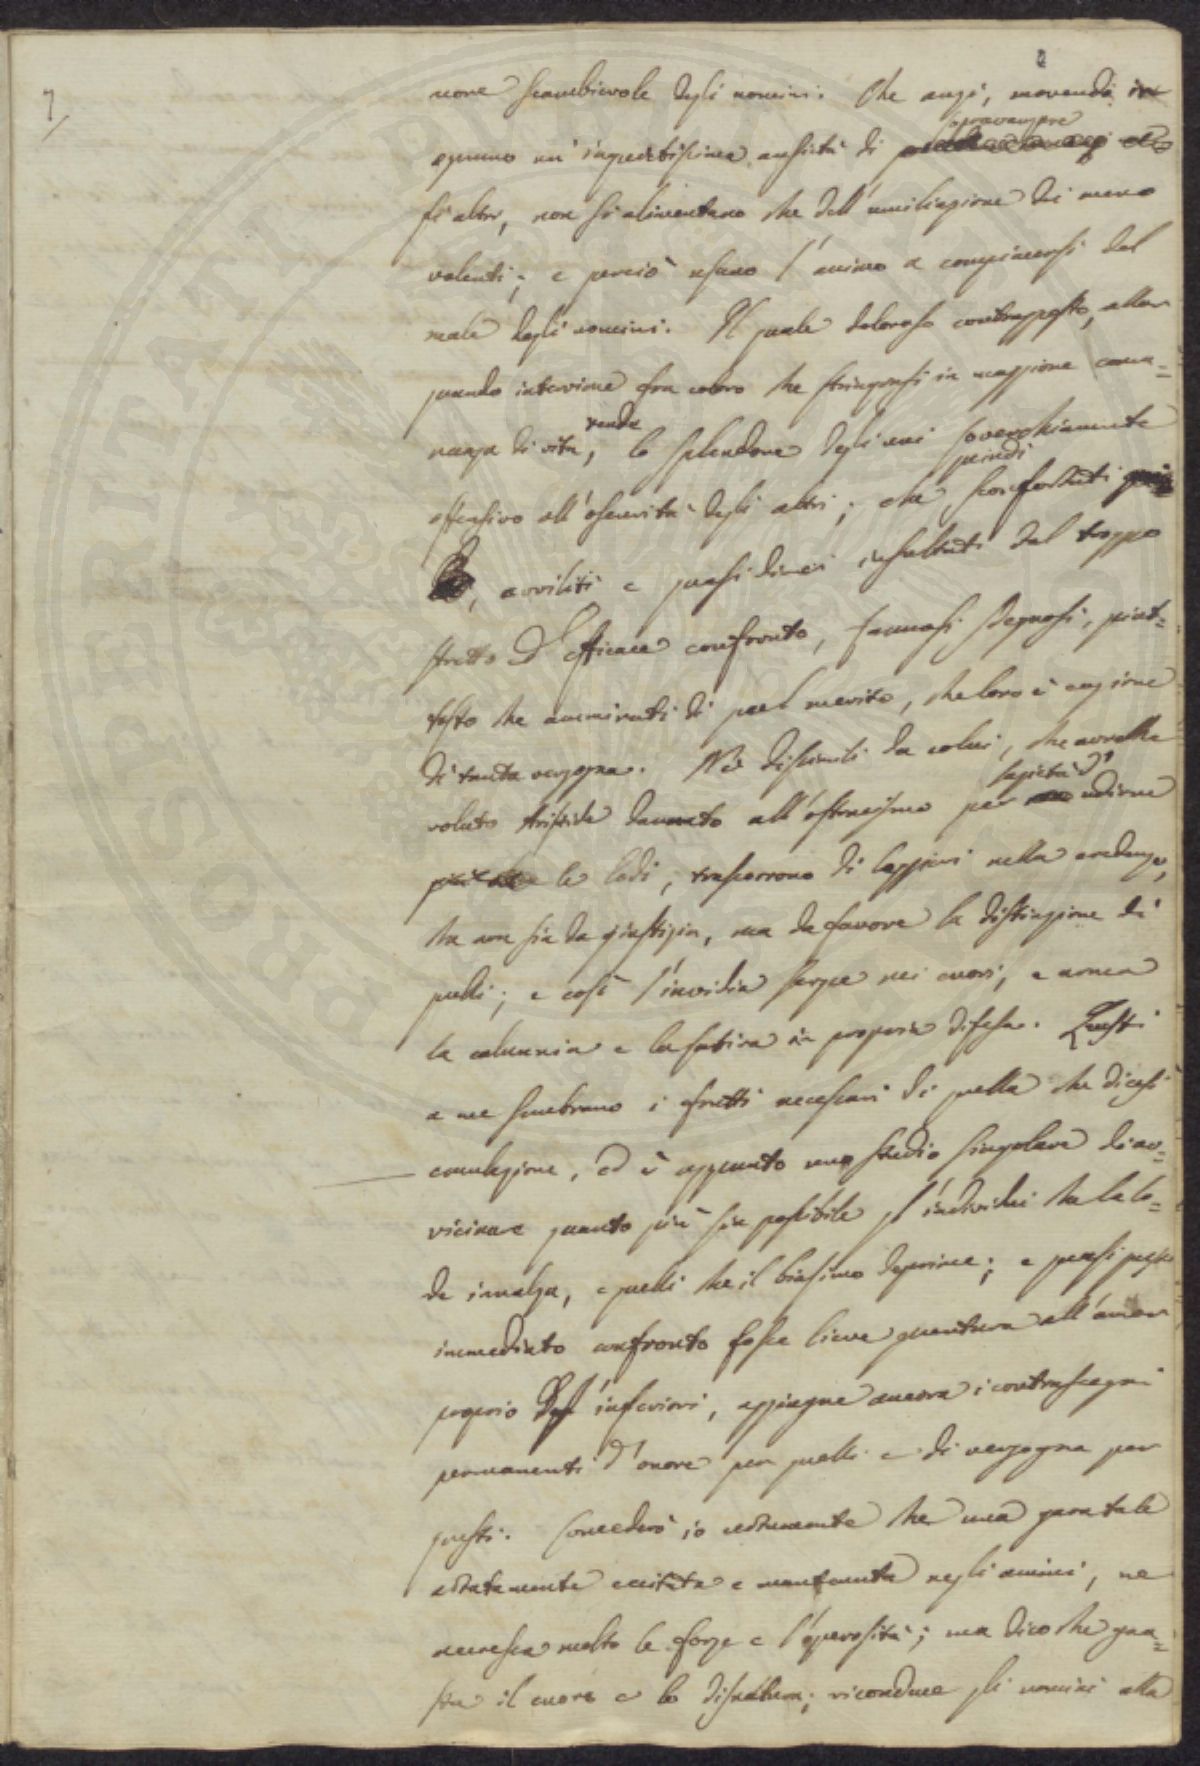 7
more scambievole degli uomini. Che anzi, movendo in
ognuno un'inquietissima ansietà di sopravanzare
gli altri, non si alimentano che dell'umiliazione dei meno
valenti; e perciò usano l'animo a compiacersi del
male degli uomini. Il quale doloroso contrapposto, allor
quando interviene fra coloro che stringonsi in maggione comu=
nanza di vita, rende lo splendore degli uni soverchiamente
offensivo all'oscurità degli altri; che sconfortati quindi
, avviliti e quasi direi insultati dal troppo
stretto ed efficace confronto, fannosi sdegnosi, piut=
tosto che ammirati di quel merito, che loro è cagione
di tanta vergogna. Nè dissimili da colui, che avrebbe
voluto Aristide dannato all'ostracismo per sazietà d' udirne
le lodi, trascorrono di leggieri nella credenza,
che non sia da giustizia, ma da favore la distinzione di
quelli; e così l'invidia serpe nei cuori, e arma
la calunnia e la satira in propria difesa. Questi
a me sembrano i frutti necessari di quella che dicesi
emulazione, ed è appunto uno studio singolare di av=
vicinare quanto più sia possibile gl'individui che la lo=
de innalza, e quelli che il biasimo deprime; e quasi
immediato confronto fosse lieve puntura all'amor
proprio degl'inferiori, aggiugne ancora i contrassegni
permanenti d'onore per quelli e di vergogna per
questi. Concederò io certamente che una gara tale
accresca molto le forze e l'operosità; ma dico che gua=
sta il cuore e lo disnatura; riconduce gli uomini alla